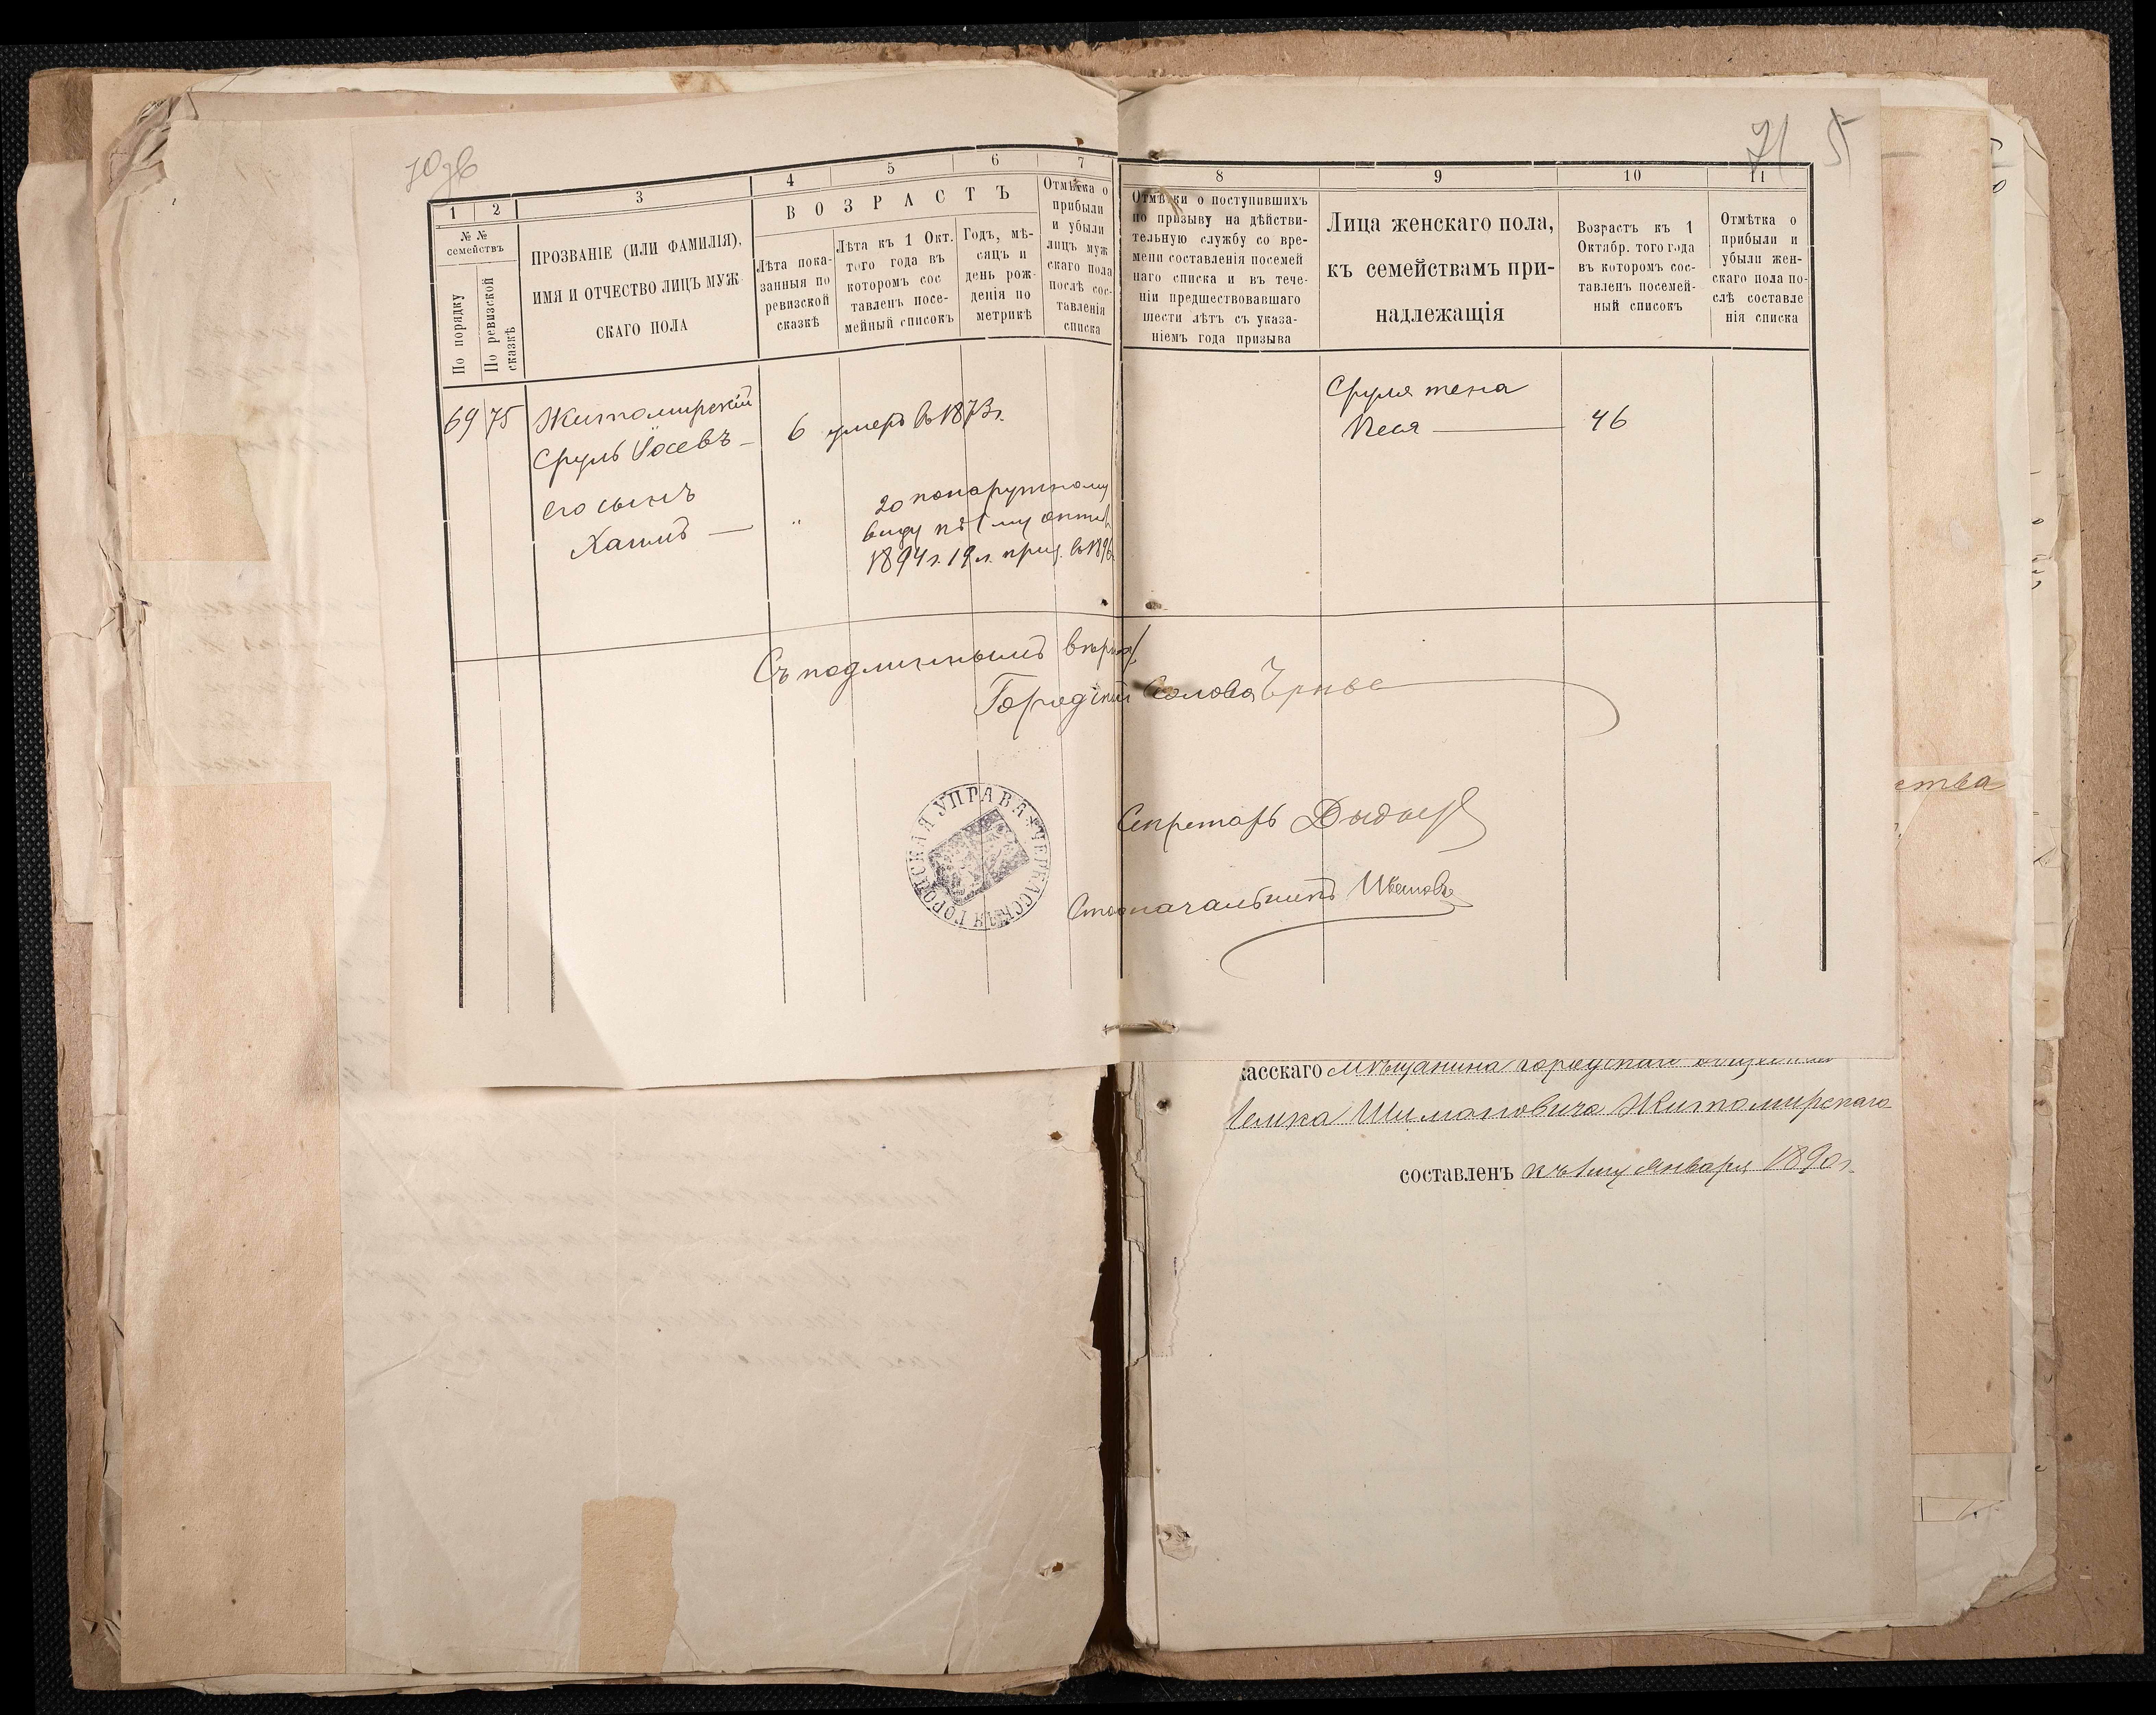 70 зв
71 5
1 2 3 4 5 6 7
№ №
семействъ
По порядку
По ревизской
сказкѣ
ПРОЗВАНІЕ (ИЛИ ФАМИЛІЯ),
ИМЯ И ОТЧЕСТВО ЛИЦЪ МУЖ
СКАГО ПОЛА
ВОЗРАСТЪ
Лѣта пока-
занныя по
ревизской
сказкѣ
Лѣта къ 1 Окт.
того года въ
котором сос
тавлен посе-
мейный списокъ
Годъ, мѣ-
сяцъ и
день рож-
денія по
метрикѣ
Отмѣтка о
прибыли
и убыли
лицъ муж
скаго пола
послѣ сос-
тавленія
списка
8 9 10 11
Отмѣтки о поступившихъ
по призыву на дѣйстви-
тельную службу со вре-
мени составленія посемей
наго списка и въ тече-
ніи предшествовавшаго
шести лѣтъ съ указа-
ніемъ года призыва
Лица женскаго пола,
къ семействамъ при-
надлежащія
Возрастъ къ 1
Октябр. того года
въ которомъ сос-
тавленъ посемей-
ный списокъ
Отмѣтка о
прибыли и
убыли жен-
скаго пола по-
слѣ составле
нія списка
69 75 Житомирскій
Сруль Іосевъ — 6 умеръ въ 1873 г.
его сынъ
Хаимъ — " 20 по наружному
виду къ 1 му октяб
1894 г. 19 л. приз. въ 1896
Сруля жена
Песя — 46
Съ подлиннымъ вѣрно
Городской Голова
Секретарь
Столоначальникъ Ивановъ
ЧЕРКАССКАЯ ГОРОДСКАЯ УПРАВА
ства
касскаго мѣщанина городскаго общества
Шимоновича Житомирскаго
составленъ къ 1 му Января 1890 г.